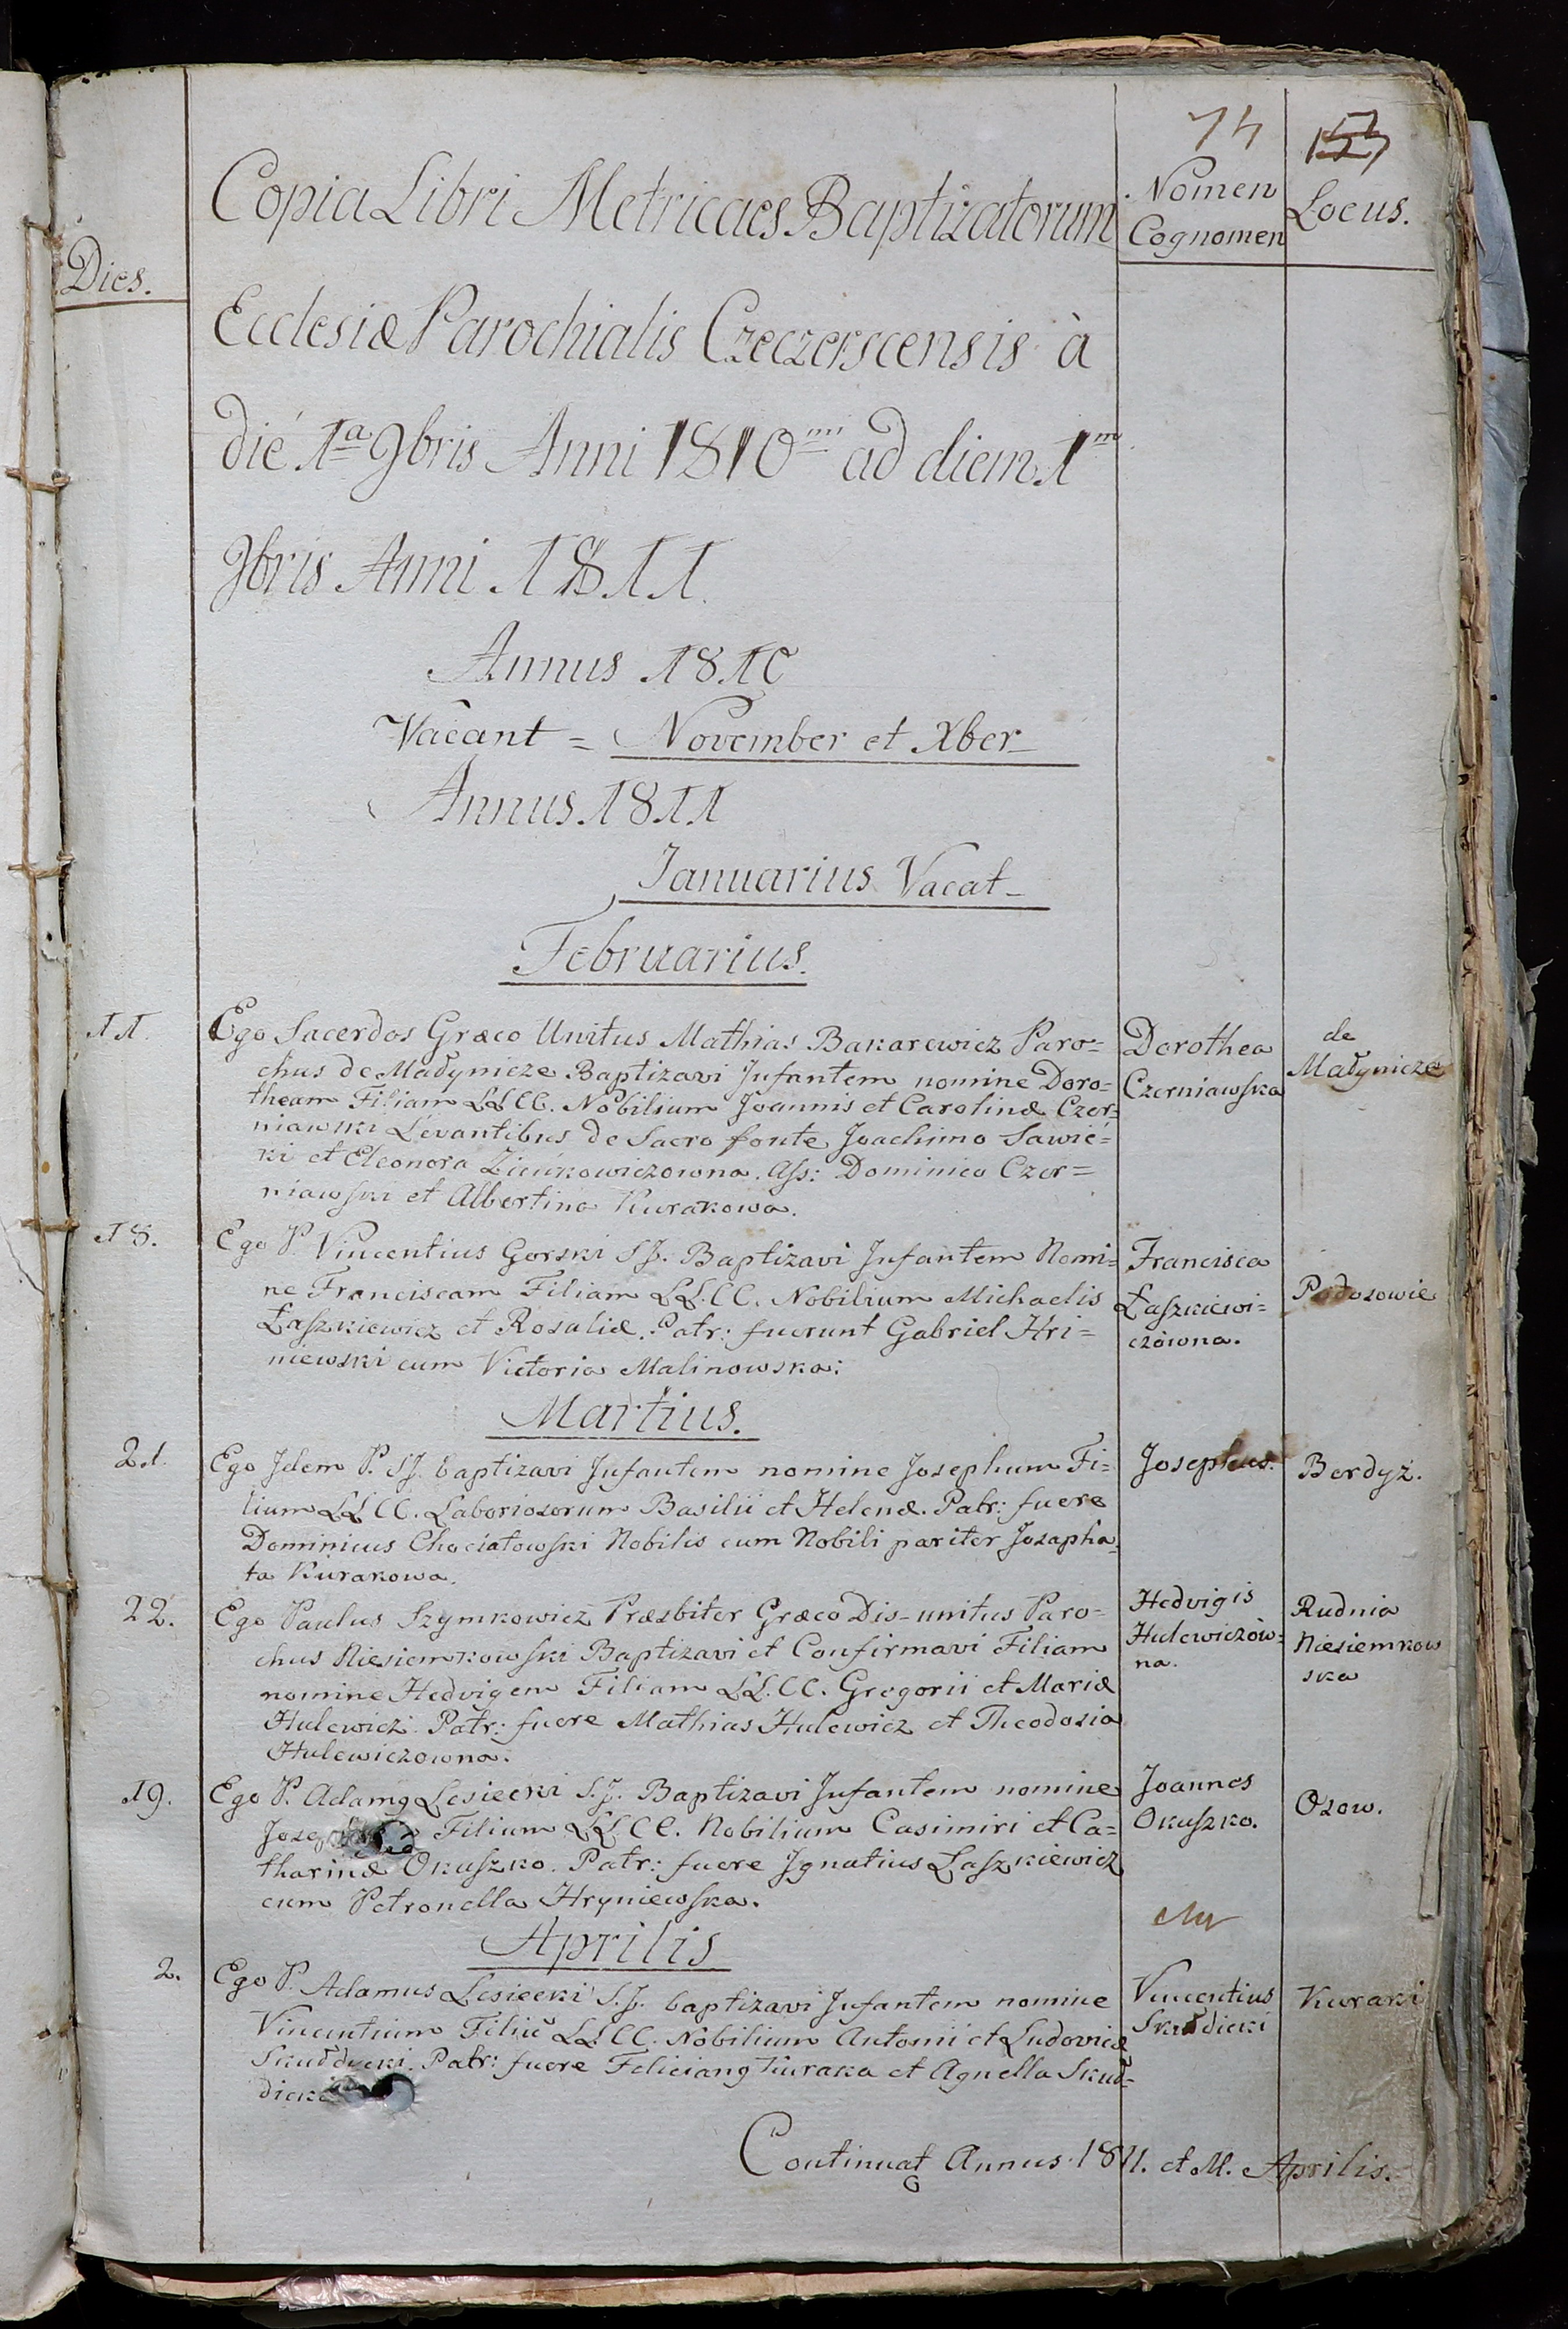 74
Nomen
Cognomen
Locus.
Dies.
Copia Libri Metricaes Baptizatorum
Ecclesiæ Parochialis Czeczerscensis à
die 1ª 9bris Anni 1810 ad diem 1m
9bris Anni 1811.
Annus 1810
Vacant = November et Xber
Annus 1811
Januarius Vacat
Februarius.
11.
Ego Sacerdos Græco Unitus Mathias Bakarewicz Paro=
chus de Małynicze Baptizavi Infantem nomine Doro=
theam Filiam LL.CC. Nobilium Joannis et Carolinæ Czer=
niawski Levantibus de Sacro fonte Joachimo Sawic=
ki et Eleonora Zienkowiczowna. Ass: Dominico Czer=
niawski et Albertina Kurakowa.
Dorothea
Czerniawska
de
Małynicze
18.
Ego P. Vincentius Gorski S.J. Baptizavi Infantem Nomi=
ne Franciscam Filiam LL.CC. Nobilium Michaelis
Łaszkiewicz et Rosaliæ. Patr: fuerunt Gabriel Hri=
niewski cum Victoria Malinowska:
Francisca
Łaszkiewi=
czówna.
Martius.
21.
Ego Idem P. S.J. baptizavi Infantem nomine Josephum Fi=
lium LL CC. Laboriosorum Basilii et Helenæ. Patr: fuere
Dominicus Chociatowski Nobilis cum Nobili pariter Jozapha=
ta Kurakowa.
Josephus.
Berdyż.
22.
Ego Paulus Szymkowicz Præsbiter Græco Dis-unitus Paro=
chus Niesiemkowski Baptizavi et Confirmavi Filiam
nomine Hedvigem Filiam LL.CC. Gregorii et Mariæ
Hulewicz. Patr: fuere Mathias Hulewicz et Theodosia
Hulewiczowna.
Hedvigis
Hulewiczów=
na.
Rudnia
Niesiemkow
ska
19.
Ego P. Adamg Lesiecki S.J. Baptizavi Infantem nomine
Filium LL.CC. Nobilium Casimiri et Ca=
tharinæ Okuszko. Patr: fuere Ignatius Łaszkiewicz
cum Petronella Hryniewska.
Joannes
Okuszko.
Osow.
Aprilis
2.
Ego P. Adamus Lesiecki S.J. baptizavi Infantem nomine
Vincentium Filiū LL.CC. Nobilium Antonii et Ludovicæ
Skułdycki. Patr: fuere Feliciang Kuraka et Agnella Skuł=
Vincentius
Skułdicki
Kuraki
Continuatg Annus 1811. et M. Aprilis.